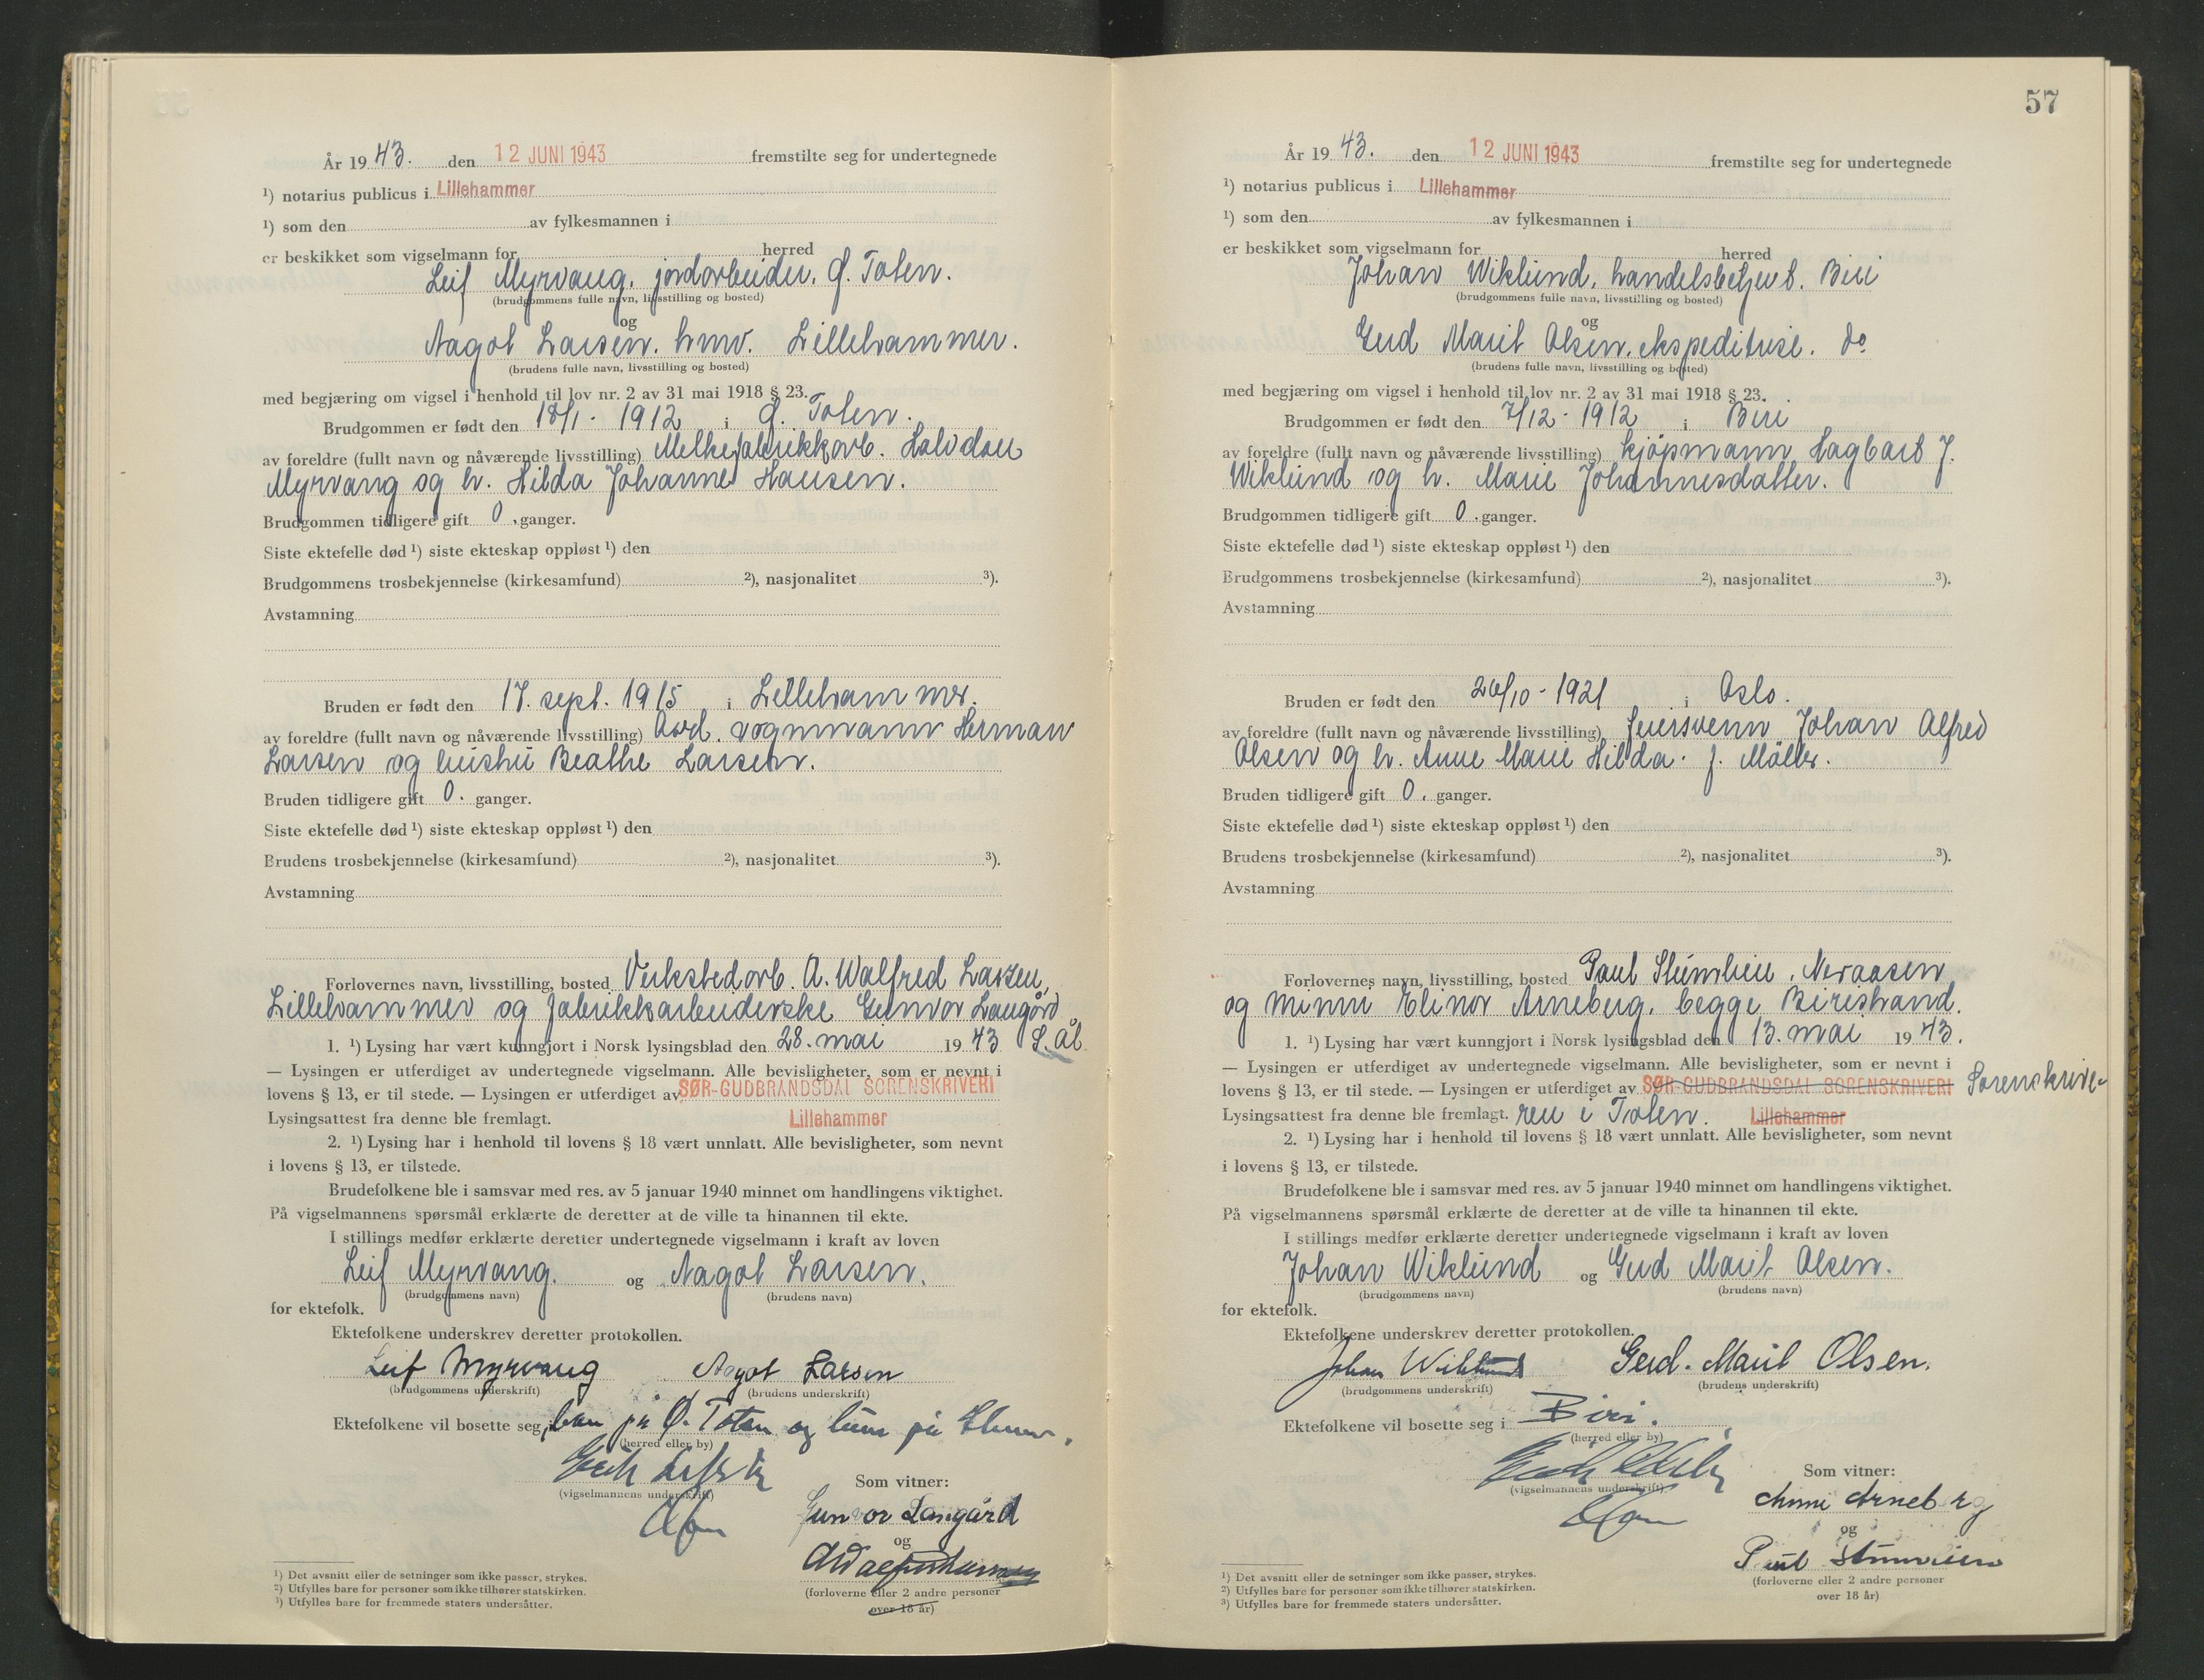 År 19 43. den 12 JUNI 1943 fremstilte seg for undertegnede
¹) notarius publicus i Lillehammer
¹) som den av fylkesmannen i
er beskikket som vigselmann for herred
Leif Myrvang, jordarbeider, Ø. Toten.
(brudgommens fulle navn, livsstilling og bosted)
og
Aagot Larsen. hmv. Lillehammer.
(brudens fulle navn, livsstilling og bosted)
med begjæring om vigsel i henhold til lov nr. 2 av 31 mai 1918 § 23.
Brudgommen er født den 18/1 - 1912 i Ø. Toten.
av foreldre (fullt navn og nåværende livsstilling) Melkefabrikkarb. Halvdan
Myrvang og h. Hilda Johanne Hansen.
Brudgommen tidligere gift 0 ganger.
Siste ektefelle død ¹) siste ekteskap oppløst ¹) den
Brudgommens trosbekjennelse (kirkesamfund) ²), nasjonalitet ³).
Avstamning
Bruden er født den 17. sept. 1915 i Lillehammer.
av foreldre (fullt navn og nåværende livsstilling) Avd. vognmann Herman
Larsen og hustru Beathe Larsen.
Bruden tidligere gift 0. ganger.
Siste ektefelle død ¹) siste ekteskap oppløst ¹) den
Brudens trosbekjennelse (kirkesamfund) ²), nasjonalitet ³).
Avstamning
Forlovernes navn, livsstilling, bosted Verkstedarb. A. Walfred Larsen,
Lillehammer og fabrikkarbeiderske Gunvor Langård
1. ¹) Lysing har vært kunngjort i Norsk lysingsblad den 28. mai 19 43 S. Ål
— Lysingen er utferdiget av undertegnede vigselmann. Alle bevisligheter, som er nevnt i
lovens § 13, er til stede. — Lysingen er utferdiget av SØR-GUDBRANDSDAL SORENSKRIVERI
Lysingsattest fra denne ble fremlagt. Lillehammer
2. ¹) Lysing har i henhold til lovens § 18 vært unnlatt. Alle bevisligheter, som nevnt
i lovens § 13, er tilstede.
Brudefolkene ble i samsvar med res. av 5 januar 1940 minnet om handlingens viktighet.
På vigselmannens spørsmål erklærte de deretter at de ville ta hinannen til ekte.
I stillings medfør erklærte deretter undertegnede vigselmann i kraft av loven
Leif Myrvang. og Aagot Larsen.
(brudgommens navn) (brudens navn)
for ektefolk.
Ektefolkene underskrev deretter protokollen.
Leif Myrvang Aagot Larsen
(brudgommens underskrift) (brudens underskrift)
Ektefolkene vil bosette seg i han på Ø. Toten og hun på
(herred eller by)
(vigselmannens underskrift)
Som vitner:
Gunvor Langård
og
(forloverne eller 2 andre personer
over 18 år)
¹) Det avsnitt eller de setninger som ikke passer, strykes.
²) Utfylles bare for personer som ikke tilhører statskirken.
³) Utfylles bare for fremmede staters undersåtter.
57
År 19 43. den 12 JUNI 1943 fremstilte seg for undertegnede
¹) notarius publicus i Lillehammer
¹) som den av fylkesmannen i
er beskikket som vigselmann for herred
Johan Wiklund, handelsbetjent. Biri
(brudgommens fulle navn, livsstilling og bosted)
og
Gerd Marit Olsen, ekspeditrise. do
(brudens fulle navn, livsstilling og bosted)
med begjæring om vigsel i henhold til lov nr. 2 av 31 mai 1918 § 23.
Brudgommen er født den 7/12 - 1912 i Biri
av foreldre (fullt navn og nåværende livsstilling) kjøpmann Hagbart J.
Wiklund og h. Marie Johannesdatter.
Brudgommen tidligere gift 0. ganger.
Siste ektefelle død ¹) siste ekteskap oppløst ¹) den
Brudgommens trosbekjennelse (kirkesamfund) ²), nasjonalitet ³).
Avstamning
Bruden er født den 26/10 - 1921 i Oslo.
av foreldre (fullt navn og nåværende livsstilling) feiersvenn Johan Alfred
Olsen og h. Anne Marie Hilda f. Møller.
Bruden tidligere gift 0. ganger.
Siste ektefelle død ¹) siste ekteskap oppløst ¹) den
Brudens trosbekjennelse (kirkesamfund) ²), nasjonalitet ³).
Avstamning
Forlovernes navn, livsstilling, bosted Paul Stumlien, Neraasen
og Minni Elinor Arneberg, begge Biristrand.
1. ¹) Lysing har vært kunngjort i Norsk lysingsblad den 13. mai 19 43.
— Lysingen er utferdiget av undertegnede vigselmann. Alle bevisligheter, som er nevnt i
lovens § 13, er til stede. — Lysingen er utferdiget av SØR-GUDBRANDSDAL SORENSKRIVERI Sorenskrive-
Lysingsattest fra denne ble fremlagt. ren i Toten. Lillehammer
2. ¹) Lysing har i henhold til lovens § 18 vært unnlatt. Alle bevisligheter, som nevnt
i lovens § 13, er tilstede.
Brudefolkene ble i samsvar med res. av 5 januar 1940 minnet om handlingens viktighet.
På vigselmannens spørsmål erklærte de deretter at de ville ta hinannen til ekte.
I stillings medfør erklærte deretter undertegnede vigselmann i kraft av loven
Johan Wiklund og Gerd Marit Olsen.
(brudgommens navn) (brudens navn)
for ektefolk.
Ektefolkene underskrev deretter protokollen.
Johan Wiklund Gerd. Marit Olsen.
(brudgommens underskrift) (brudens underskrift)
Ektefolkene vil bosette seg i Biri.
(herred eller by)
(vigselmannens underskrift)
Som vitner:
Minni Arneberg
og
Paul Stumlien
(forloverne eller 2 andre personer
over 18 år)
¹) Det avsnitt eller de setninger som ikke passer, strykes.
²) Utfylles bare for personer som ikke tilhører statskirken.
³) Utfylles bare for fremmede staters undersåtter.